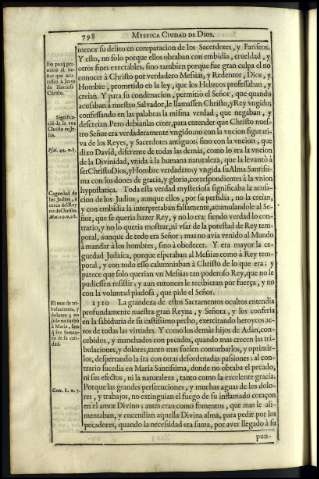 798
MYSTICA CIUDAD DE DIOS.
menor su delito en comparacion de los Sacerdotes, y Fariseos.
Y esto, no solo porque ellos obraban con embidia, crueldad, y
otros fines execrables, sino tambien porque fue gran culpa el no
conocer à Christo por verdadero Messias, y Redentor, Dios, y
Hombre, prometido en la ley, que los Hebreos professaban, y
creìan. Y para su condenacion, permitiò el Señor, que quando
acusaban à nuestro Salvador, le llamassen Christo, y Rey ungido,
confessando en las palabras la misma verdad, que negaban, y
descreìan. Pero debianlas creer, para entender que Christo nues-
tro Señor era verdaderamente ungido, no con la uncion figurati-
va de los Reyes, y Sacerdotes antiguos; sino con la uncion, que
dixo David, diferente de todas las demàs, como lo era la uncion
de la Divinidad, unida à la humana naturaleza, que la levantò à
ser Christo Dios, y Hombre verdadero; y ungida su Alma Santissi-
ma con los dones de gracia, y gloria, correspondientes à la union
hypostatica. Toda esta verdad mysteriosa significaba la acusa-
cion de los Judios, aunque ellos, por su perfidia, no la creìan,
y con embidia la interpretaban falsamente, acumulandole al Se-
ñor, que se querìa hazer Rey, y no lo era; siendo verdad lo con-
trario, y no lo querìa mostrar, ni usar de la potestad de Rey tem-
poral, aunque de todo era Señor; mas no avia venido al Mundo
à mandar à los hombres, sino à obedecer. Y era mayor la ce-
guedad Judaica, porque esperaban al Messias como à Rey tem-
poral, y con todo esso calumniaban à Christo de lo que era: y
parece que solo querìan un Messias tan poderoso Rey, que no le
pudiessen resistir, y aun entonces le recibirian por fuerça, y no
con la voluntad piadosa, que pide el Señor.
1310 La grandeza de estos Sacramentos ocultos entendia
profundamente nuestra gran Reyna, y Señora, y los conferìa
en la sabiduria de su castissimo pecho, exercitando heroycos ac-
tos de todas las virtudes. Y como los demàs hijos de Adàn, con-
cebidos, y manchados con pecados, quando mas crecen las tri-
bulaciones, y dolores, tanto mas suelen conturbarlos, y oprimir-
los, despertando la ira con otras desordenadas passiones: al con-
trario sucedia en Maria Santissima, donde no obraba el pecado,
ni sus efectos, ni la naturaleza, tanto como la excelente gracia.
Porque las grandes persecuciones, y muchas aguas de los dolo-
res, y trabajos, no extinguian el fuego de su inflamado coraçon
en el amor Divino; antes eran como fomentos, que mas le ali-
mentaban, y encendian aquella Divina alma, para pedir por los
pecadores, quando la necesidad era suma, por aver llegado à su
pun-
Psal. 44. v. 8.
Ceguedad de
los Judios,
Cant. 8. v. 7.